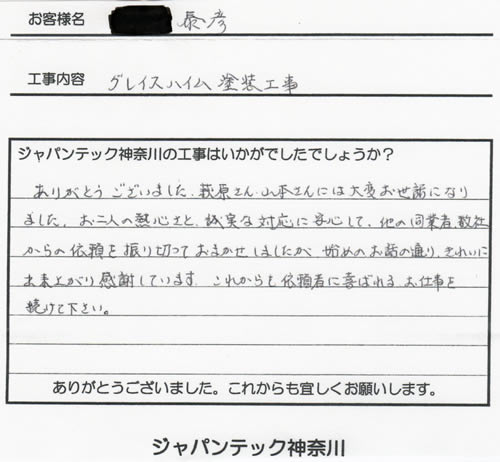 お客様名 泰彦
工事内容 グレイスハイム塗装工事
ジャパンテック神奈川の工事はいかがでしたでしょうか?
ありがとうございました、萩原さん、山本さんには大変お世話になり
ました。お二人の熱心さと、誠実な対応に安心して、他の同業者数社
からの依頼を振り切っておまかせしましたが、始めのお話の通り、きれいに
出来上がり感謝しています。これからも依頼者に喜ばれるお仕事を
続けて下さい。
ありがとうございました。これからも宜しくお願いします。
ジャパンテック神奈川